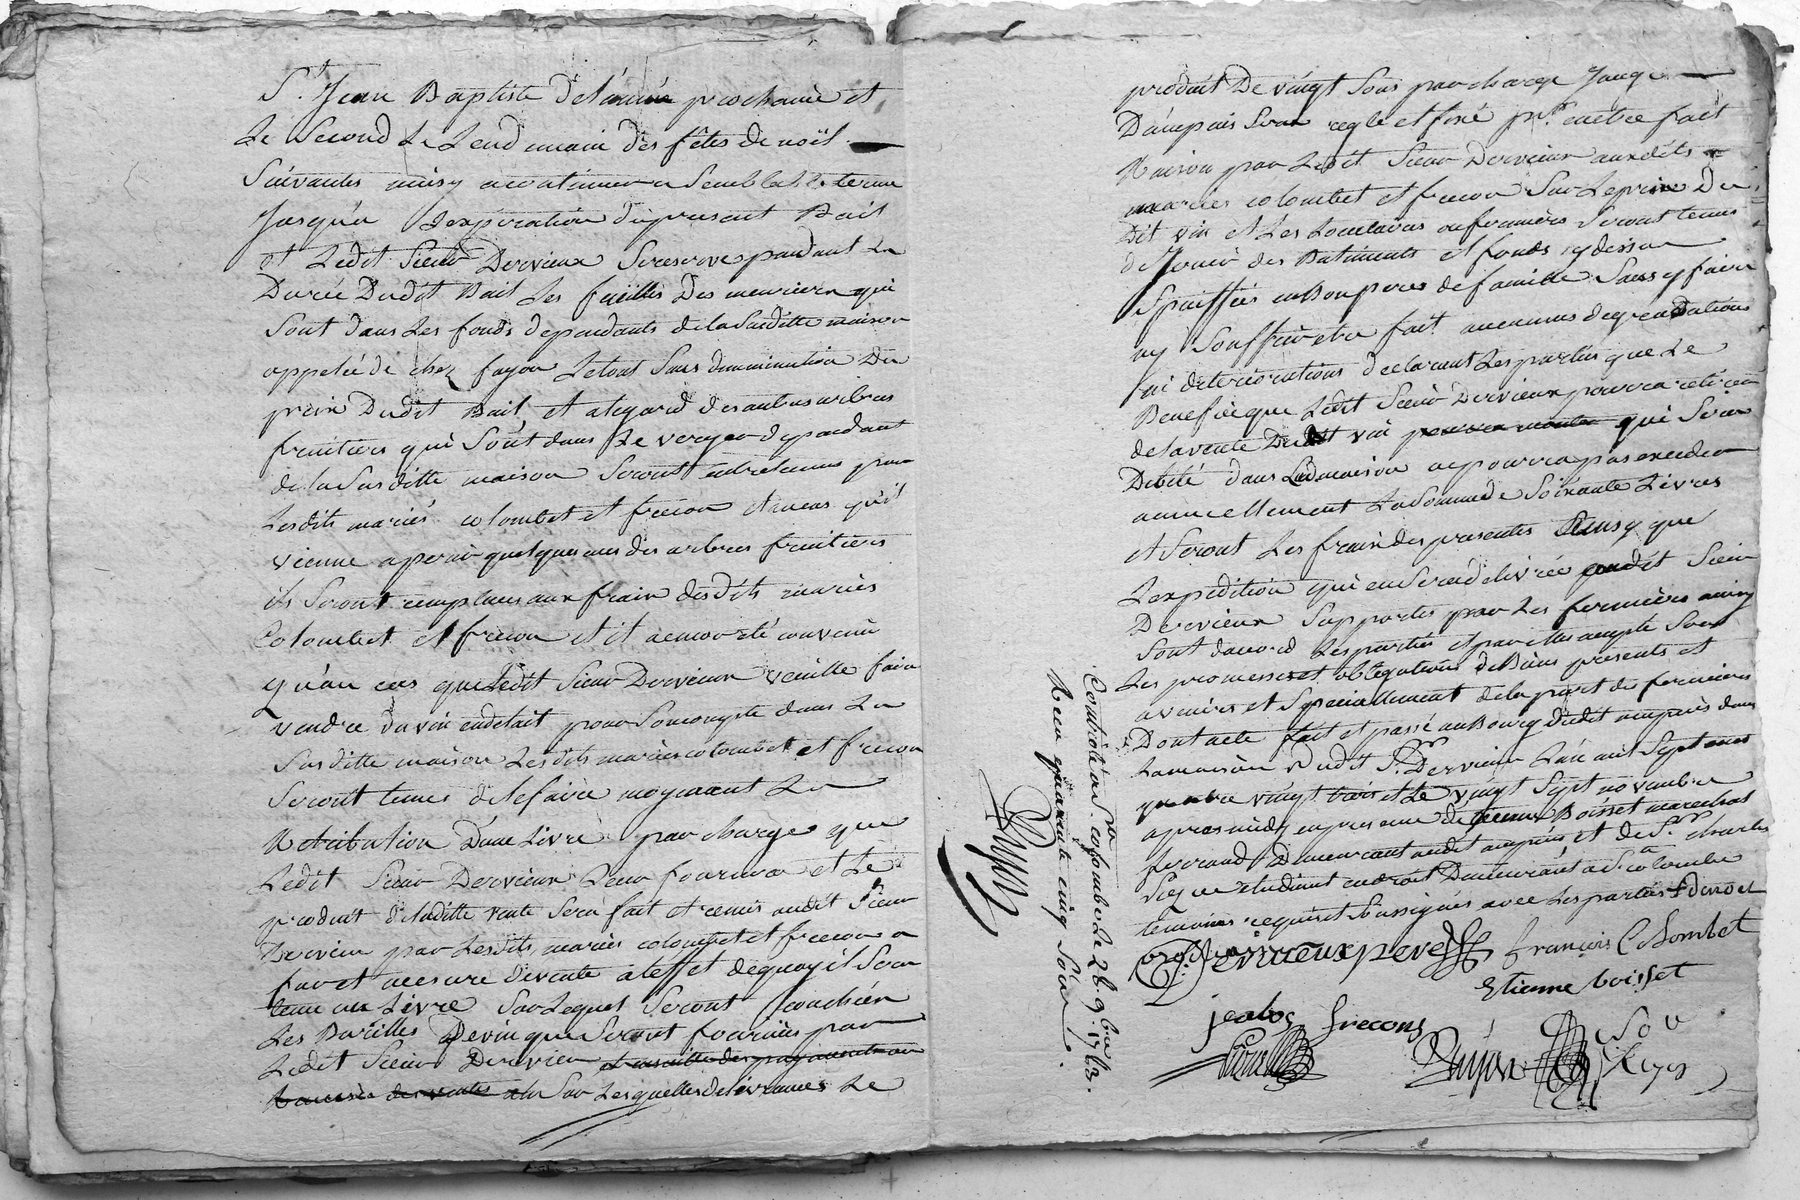 St. Jean Baptiste de l'année prochaine et
Le Second Le Lendemain des fêtes de noël
Suivantes ainsy a continuer a Semblable terme
Jusqu'a Lexpiration du present Bail
et Ledit Sieur Dervieux Se reserve pendant La
Durée Dudit Bail Les fuëilles Des meuriers qui
Sont dans Les fonds dependants de la Susditte maison
appelée de chez fayon Le tout Sans diminution Du
prix Dudit Bail, et a legard des autres arbres
fruitiers qui Sont dans Le verger dependant
de la Susditte maison Seront entretenus par
Lesdits mariés colombet et frecon et au cas qu'il
vienne a perir quelques uns des arbres fruitiers
ils Seront remplacés aux fraix desdits mariés
Colombet et frecon et it a encor eté convenu
qu'au cas que Ledit Sieur Dervieux veuille faire
vendre du vin en detail pour Son compte dans La
Susditte maison Lesdits mariés colombet et frecon
Seront tenus de le faire moyenant La
Retribution D'une Livre par charge que
Ledit Sieur Dervieux Leur fournira et Le
produit de laditte vente Sera fait et remis audit Sieur
Dervieux par Lesdits mariés colombet et frecon a
fur et mesure de vente a l'effet de quoy il Sera
tenu un Livre Sur Lequel Seront couchées
Les Barilles De vin que Seront fournies par
Ledit Sieur Dervieux
Sur Lesquelles delivrances Le
produit De vingt Sous par charge Jauge
D'ampuis Sera reglé et fixé pr. en etre fait
Raison par Ledit Sieur Dervieux auxdits
mariés colombet et frecon Sur Le prix Du
Dit vin et Les Locataires ou fermiers Seront tenus
de Jouir des Batiments et fonds cy dessus
Spéciffiés en Bon peres de famille Sans y faire
ny Souffrir etre fait aucunes degradations
ni deteriorations declarant Les parties que Le
Benefice que Ledit Sieur Dervieux pourra retirer
de la vente Dudit vin qui Sera
Debité dans Laditte maison ne pourra pas exceder
annuellement La Somme de Soixante Livres
et Seront Les fraix des presentes ainsy que
Lexpedition qui en Sera delivrée audit Sieur
Dervieux Supportés par Les fermiers ainsy
Sont d'accord Les parties et par elles accepté Sous
Les promesses et obligations de Biens presents et
avenirs et Specialement de la part des fermiers
Dont acte fait et passé au Bourg dudit ampuis dans
La maison dudit Sr. Dervieux L'an mil Sept cent
Soixante trois et Le vingt Sept novembre
apres midy en presence de Etienne Boisset marechal
ferrand Demeurant audit ampuis, et de Sr. charles
etudiant en droit Demeurant a Ste. colombe
temoins requis et Soussignés avec Les parties
Dervieux pere françois Colombet
Etienne boisset
jcabos frecons
Dujas
Controllé a Ste. colombe Le 28. 9bre 1763.
Reçu quarante cinq Sols
Dujas